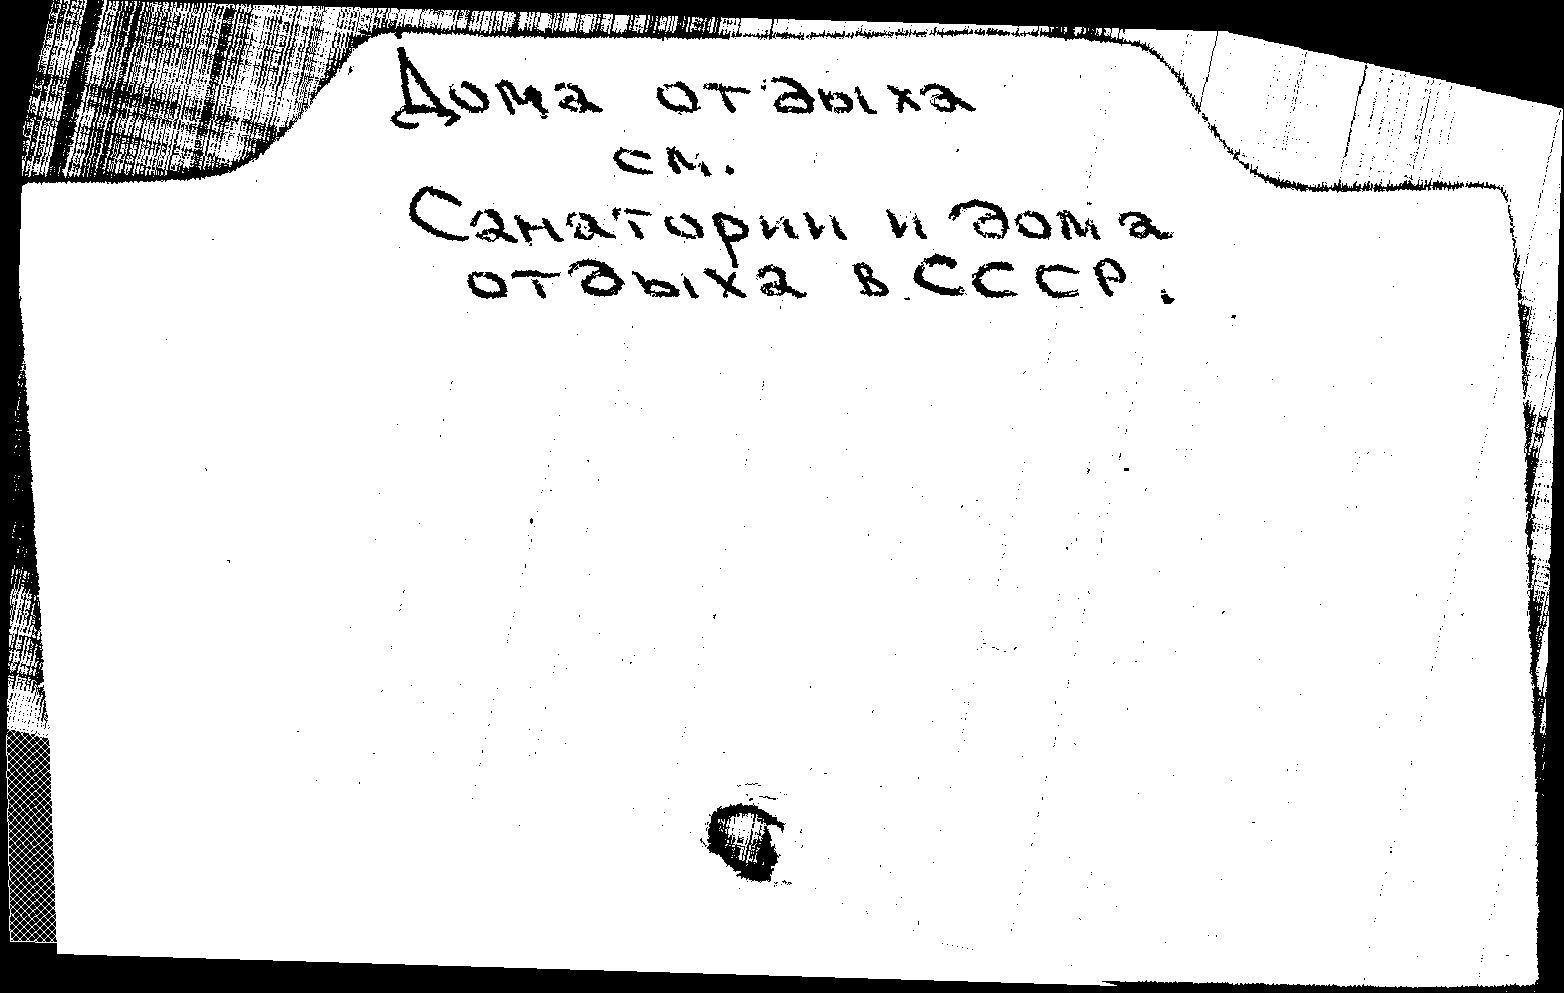 Дома отдыха
см.
Санатории и дома
отдыха в СССР.